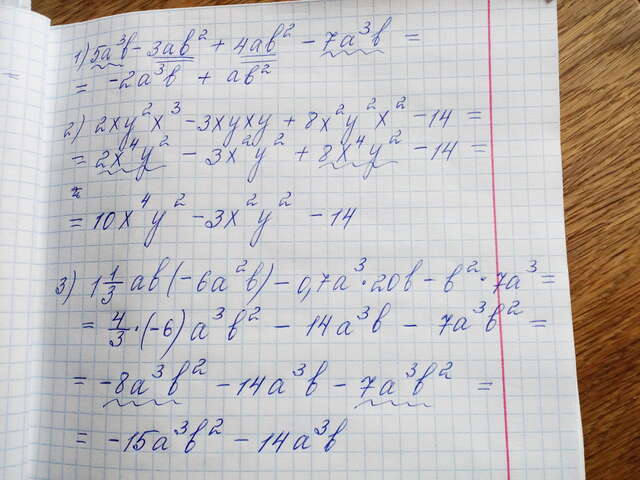 =
1) 5a³b - 3ab² + 4ab² - 7a³b =
= -2a³b + ab²
2) 2xy²x³ - 3xyxy + 8x²y²x² - 14 =
= 2x⁴y² - 3x²y² + 8x⁴y² - 14 =
= 10x⁴y² - 3x²y² - 14
3) 1 1/3 ab(-6a²b) - 0,7a³·20b - b²·7a³ =
= 4/3·(-6)a³b² - 14a³b - 7a³b² =
= -8a³b² - 14a³b - 7a³b² =
= -15a³b² - 14a³b